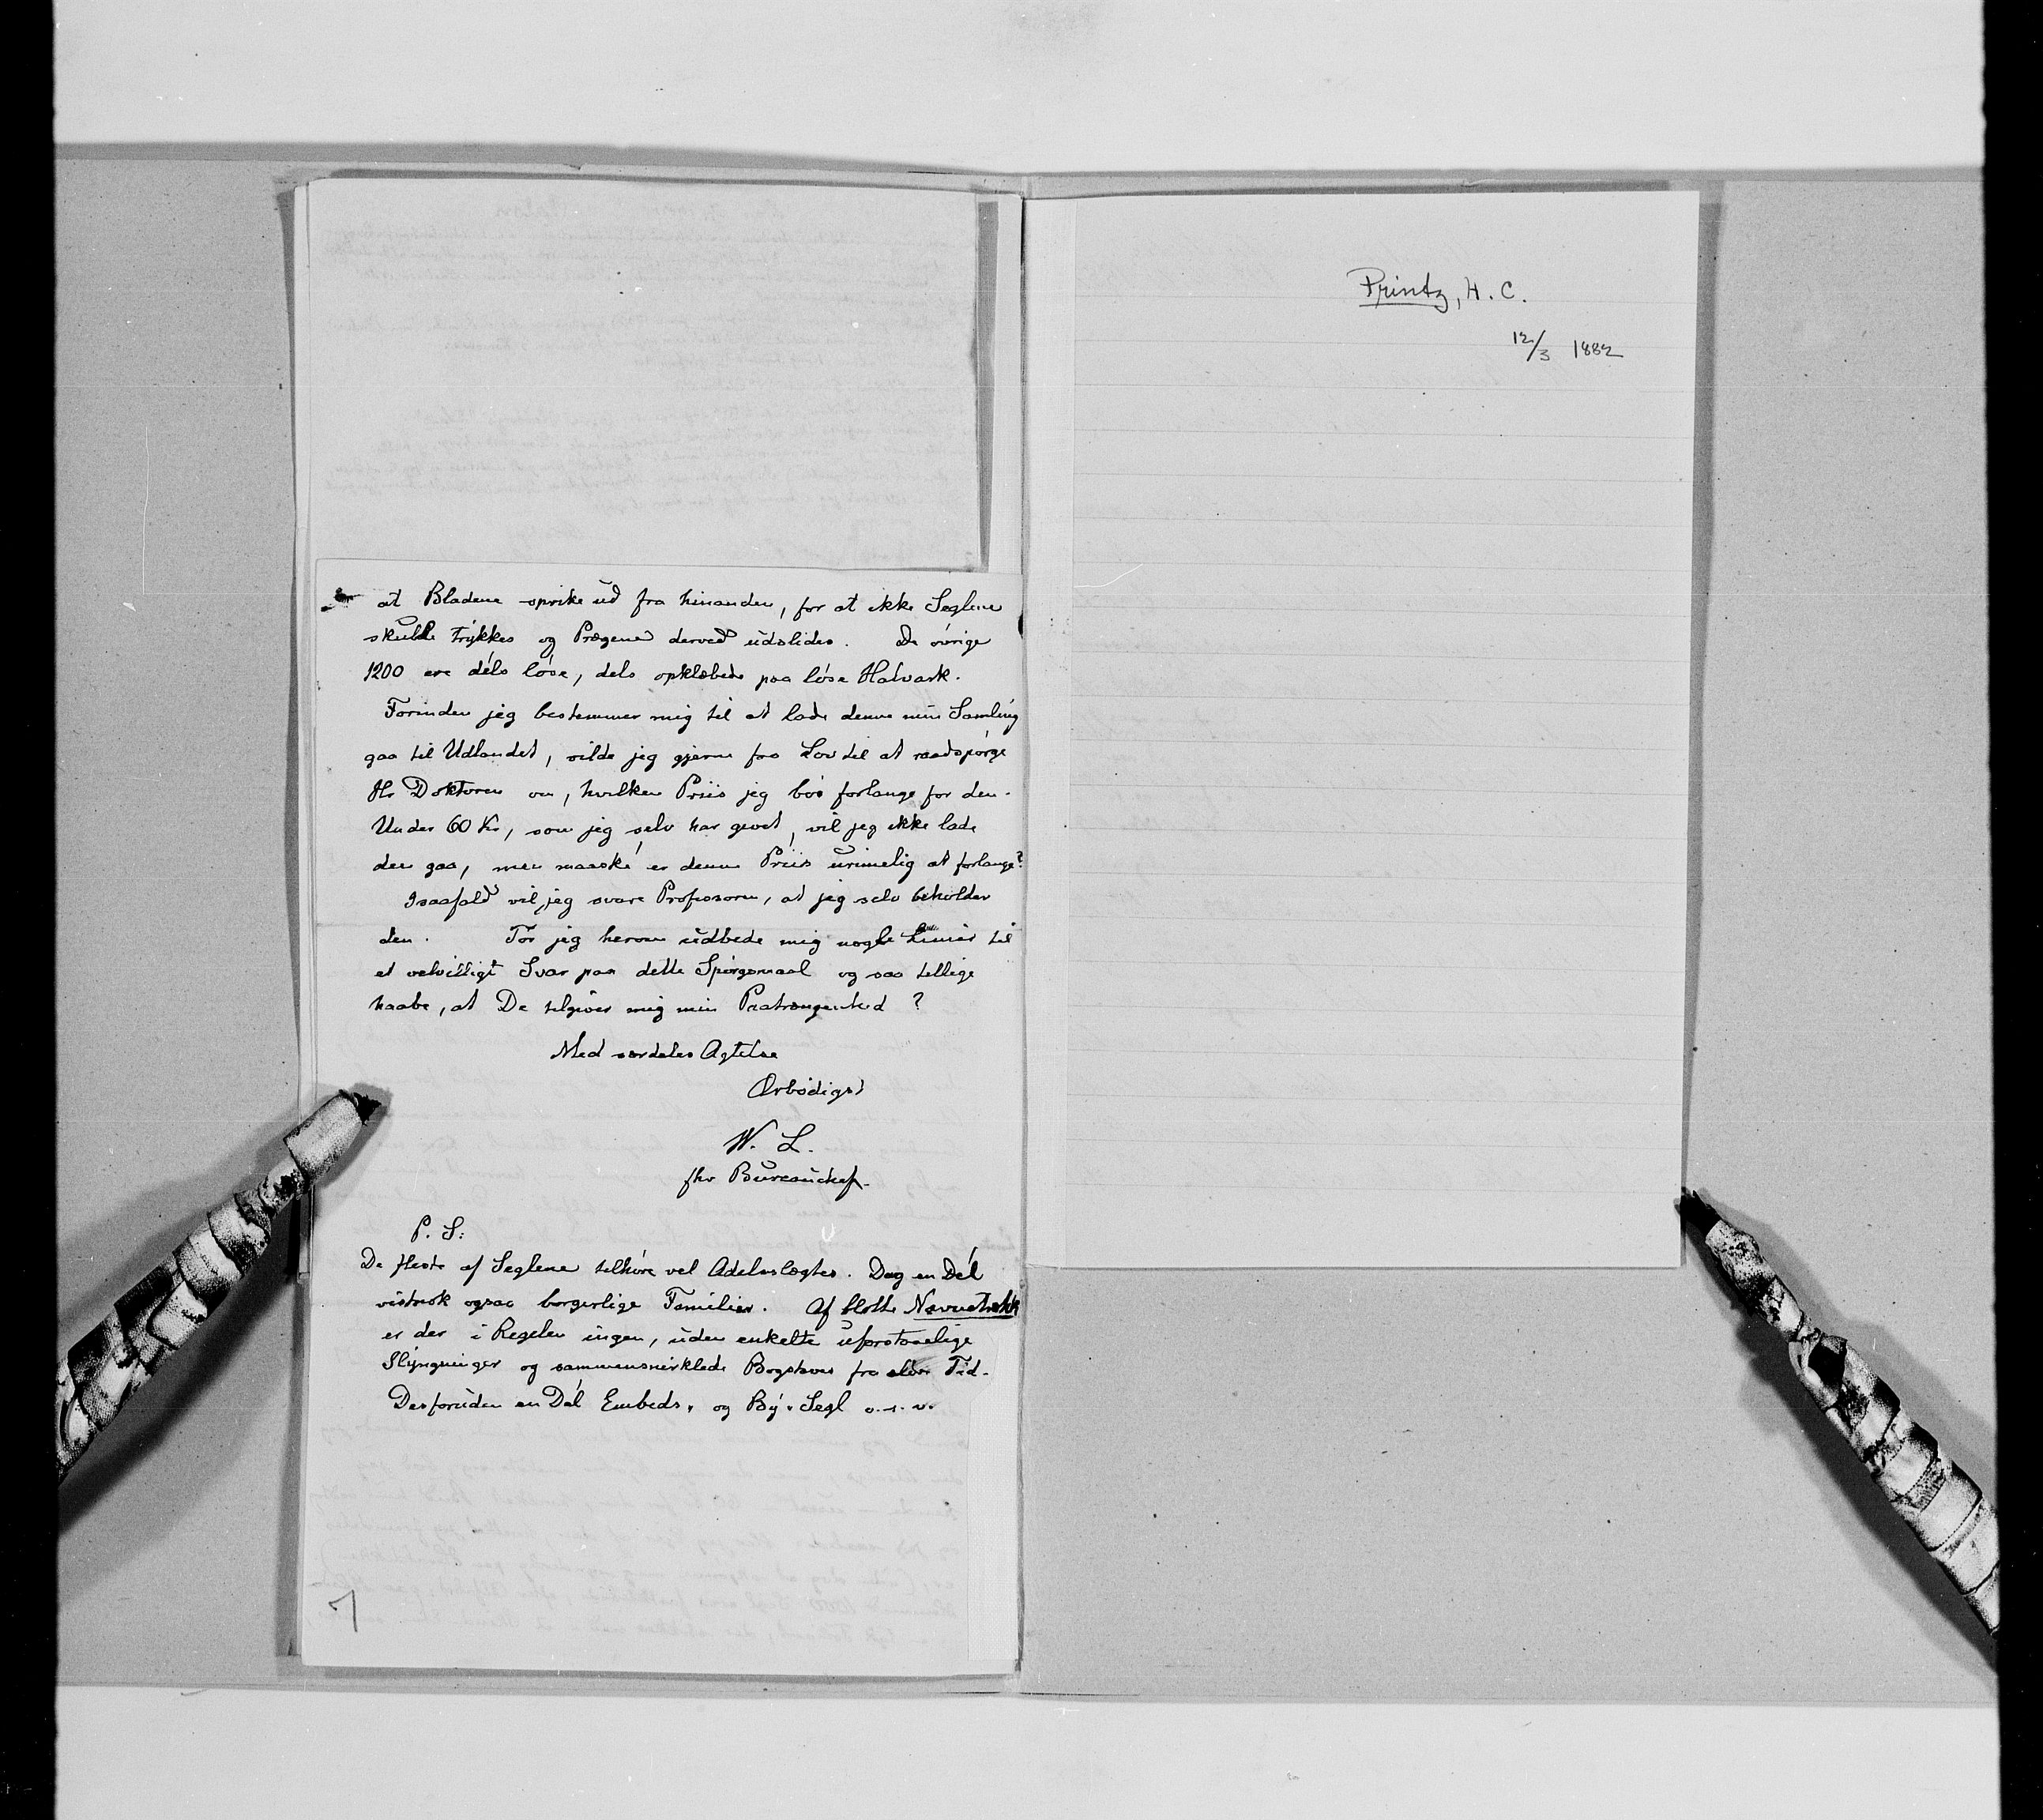 at Bladene sprike ud fra hinanden, for at ikke Seglene
skulde trykkes og Prægene derved udslides. De øvrige
1200 ere dels løse, dels opklæbede paa løse Halvark.
Forinden jeg bestemmer mig til at lade denne min Samling
gaa til Udlandet, vilde jeg gjerne faa Lov til at raadspørge
Hr Doktoren om, hvilken Priis jeg bør forlange for den.
Under 60 Kr, som jeg selv har givet, vil jeg ikke lade
den gaa, men maaske er denne Priis urimelig at forlange?
Isaafald vil jeg svare Professoren, at jeg selv beholder
den. Tør jeg herom udbede mig nogle Linier til
et velvilligt Svar paa dette Spørgsmaal og saa tillige
haabe, at De tilgiver mig min Paatrængenhed?
Med særdeles Agtelse
Ærbødigst
W. L.
fhv Bureauchef.
P. S:
De fleste af Seglene tilhøre vel Adelsslægter. Dog en Del
vistnok ogsaa borgerlige Familier. Af blotte Navnetrækk
er der i Regelen ingen, uden enkelte uforstaaelige
Slyngninger og sammensnirklede Bogstaver fra eldre Tid.
Desforuden en Del Embeds- og By-Segl o.s.v.
7
Printz, H. C.
12/3 1882